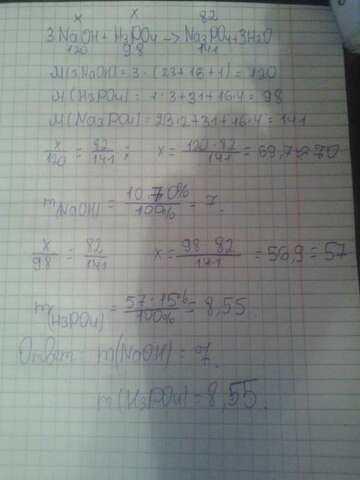 x x 82
3NaOH + H3PO4 -> Na3PO4 + 3H2O
120 98 141
M(3NaOH) = 3 · (23+16+1) = 120
M(H3PO4) = 1·3+31+16·4 = 98
M(Na3PO4) = 23·2+31+16·4 = 141
x/120 = 82/141 ; x = 120·82/141 = 69,7 ≈ 70
mNaOH = 10·70%/100% = 7.
x/98 = 82/141 x = 98·82/141 = 56,9 = 57
m(H3PO4) = 57·15%/100% = 8,55
Ответ: m(NaOH) = 7.
m(H3PO4) = 8,55.